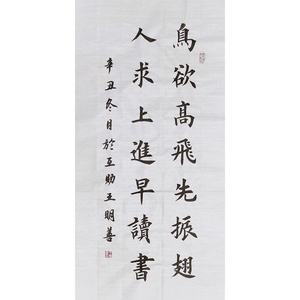 鳥欲髙飛先振翅
人求上進早讀書
辛丑冬月於互助王明善